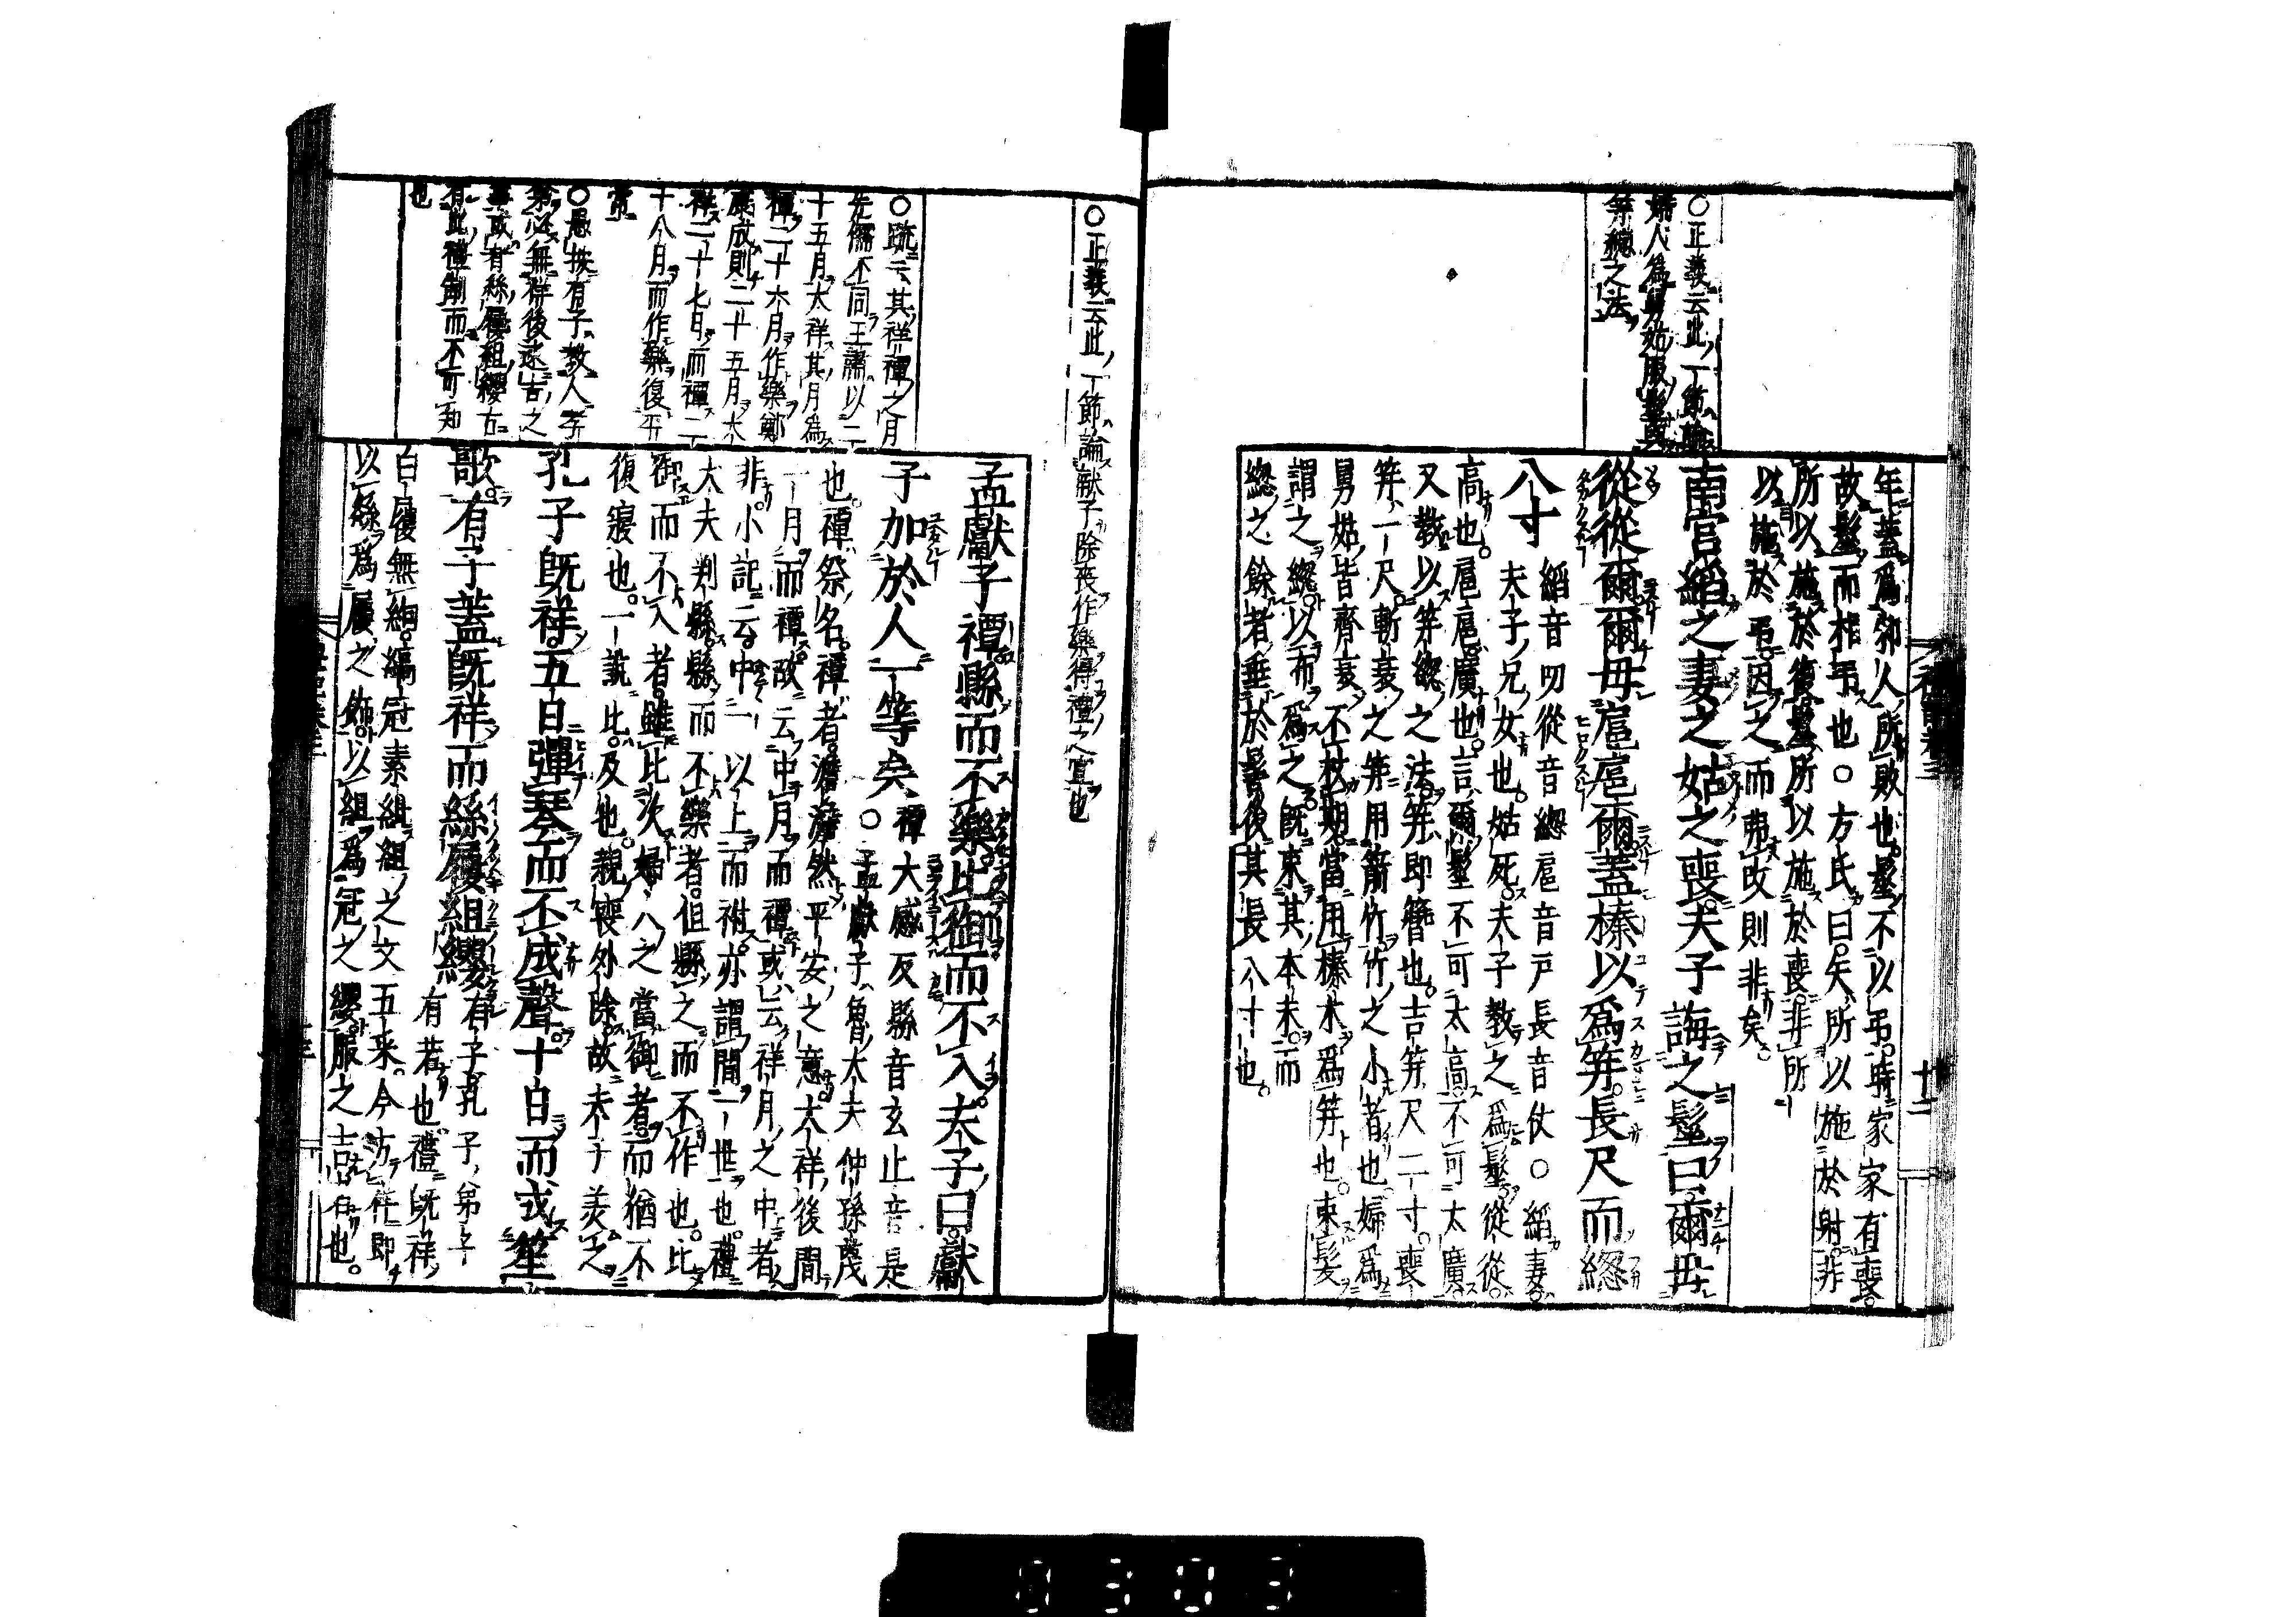 ○正義云此一節論
婦人爲舅姑服髽與
笄緫之法
年蓋爲邾人所敗也髽不以弔時家家有喪
故髽而相弔也○方氏曰矢所以施於射非
所以施於復髽所以施於喪非所
以施於弔因之而弗改則非矣
南宮縚之妻之姑之喪夫子誨之髽曰爾毋
從從爾爾毋扈扈爾蓋榛以爲笄長尺而緫
八寸
縚音叨從音緫扈音戸長音仗○縚妻
夫子兄女也姑死夫子教之爲髽從從
高也扈扈廣也言爾髽不可太高不可太廣
又教以笄緫之法笄即簪也吉笄尺二寸喪
笄一尺斬衰之笄用箭竹竹之小者也婦爲
舅姑皆齊衰不杖期當用榛木爲笄也束髮
謂之緫以布爲之既束其本末而
緫之餘者垂於髻後其長八寸也
○正義云此一節論獻子除喪作樂得禮之宜也
○疏云其祥禫之月
先儒不同王肅以二
十五月大祥其月爲
禫二十六月作樂鄭
康成則二十五月大
祥二十七月而禫二
十八月而作樂復平
常
○愚按有子教人孝
弟必無祥後遽吉之
事或有絲屨組纓古
有此禮制而不可知
也
孟獻子禫縣而不樂比御而不入夫子曰獻
子加於人一等矣
禫大感反縣音玄比音是
○孟獻子魯大夫仲孫蔑
也禫祭名禫者澹澹然平安之意大祥後間
一月而禫故云中月而禫或云祥月之中者
非小記云中一以上而祔亦謂間一世也禮
大夫判縣縣而不樂者但縣之而不作也比
御而不入者雖比次婦人之當御者而猶不
復寢也一說比及也親喪外除故夫子美之
孔子既祥五日彈琴而不成聲十日而成笙
歌有子蓋既祥而絲屨組纓
有子孔子弟子
有若也禮既祥
白屨無絇縞冠素紕組之文五采今方祥即
以絲爲屨之飾以組爲冠之纓服之吉者也
0303